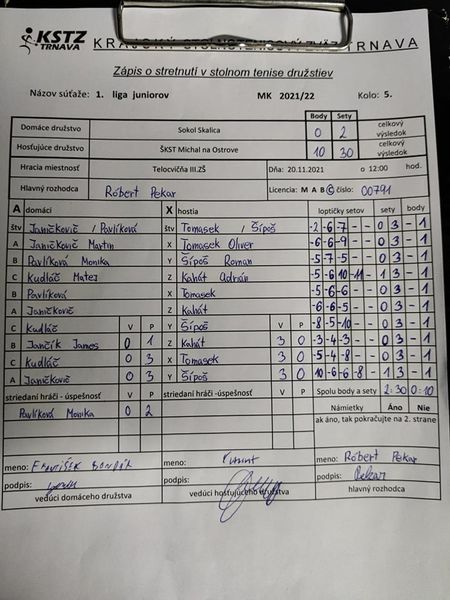 KSTZ TRNAVA KRAJSKÝ STOLNOTENISOVÝ ZVÄZ TRNAVA
Zápis o stretnutí v stolnom tenise družstiev
Názov súťaže: 1. liga juniorov MK 2021/22 Kolo: 5.
Body Sety
Domáce družstvo Sokol Skalica 0 2 celkový výsledok
Hosťujúce družstvo ŠKST Michal na Ostrove 10 30 celkový výsledok
Hracia miestnosť Telocvičňa III.ZŠ Dňa: 20.11.2021 o 12:00 hod.
Hlavný rozhodca Róbert Pekar Licencia: M A B C číslo: 00791
A domáci X hostia loptičky setov sety body
štv Janičkovič / Pavlíková štv Tomasek / Šípoš -2 -6 -7 - - 0 3 - 1
A Janičkovič Martin X Tomasek Oliver -6 -6 -9 - - 0 3 - 1
B Pavlíková Monika Y Šípoš Roman -5 -7 -5 - - 0 3 - 1
C Kudláč Matej Z Kahát Adrián -5 -6 10 -11 - 1 3 - 1
B Pavlíková X Tomasek -5 -6 -6 - - 0 3 - 1
A Janičkovič Z Kahát -6 -6 -5 - - 0 3 - 1
C Kudláč V P Y Šípoš V P -8 -5 -10 - - 0 3 - 1
B Jančík James 0 1 Z Kahát 3 0 -3 -4 -3 - - 0 3 - 1
C Kudláč 0 3 X Tomasek 3 0 -5 -4 -8 - - 0 3 - 1
A Janičkovič 0 3 Y Šípoš 3 0 10 -6 -6 -8 - 1 3 - 1
striedaní hráči - úspešnosť V P striedaní hráči - úspešnosť V P Spolu body a sety 2:30 0:10
Pavlíková Monika 0 2 Námietky Áno Nie
ak áno, tak pokračujte na 2. strane
meno: František meno: meno: Róbert Pekar
podpis: podpis: podpis: Pekar
vedúci domáceho družstva vedúci hosťujúceho družstva hlavný rozhodca